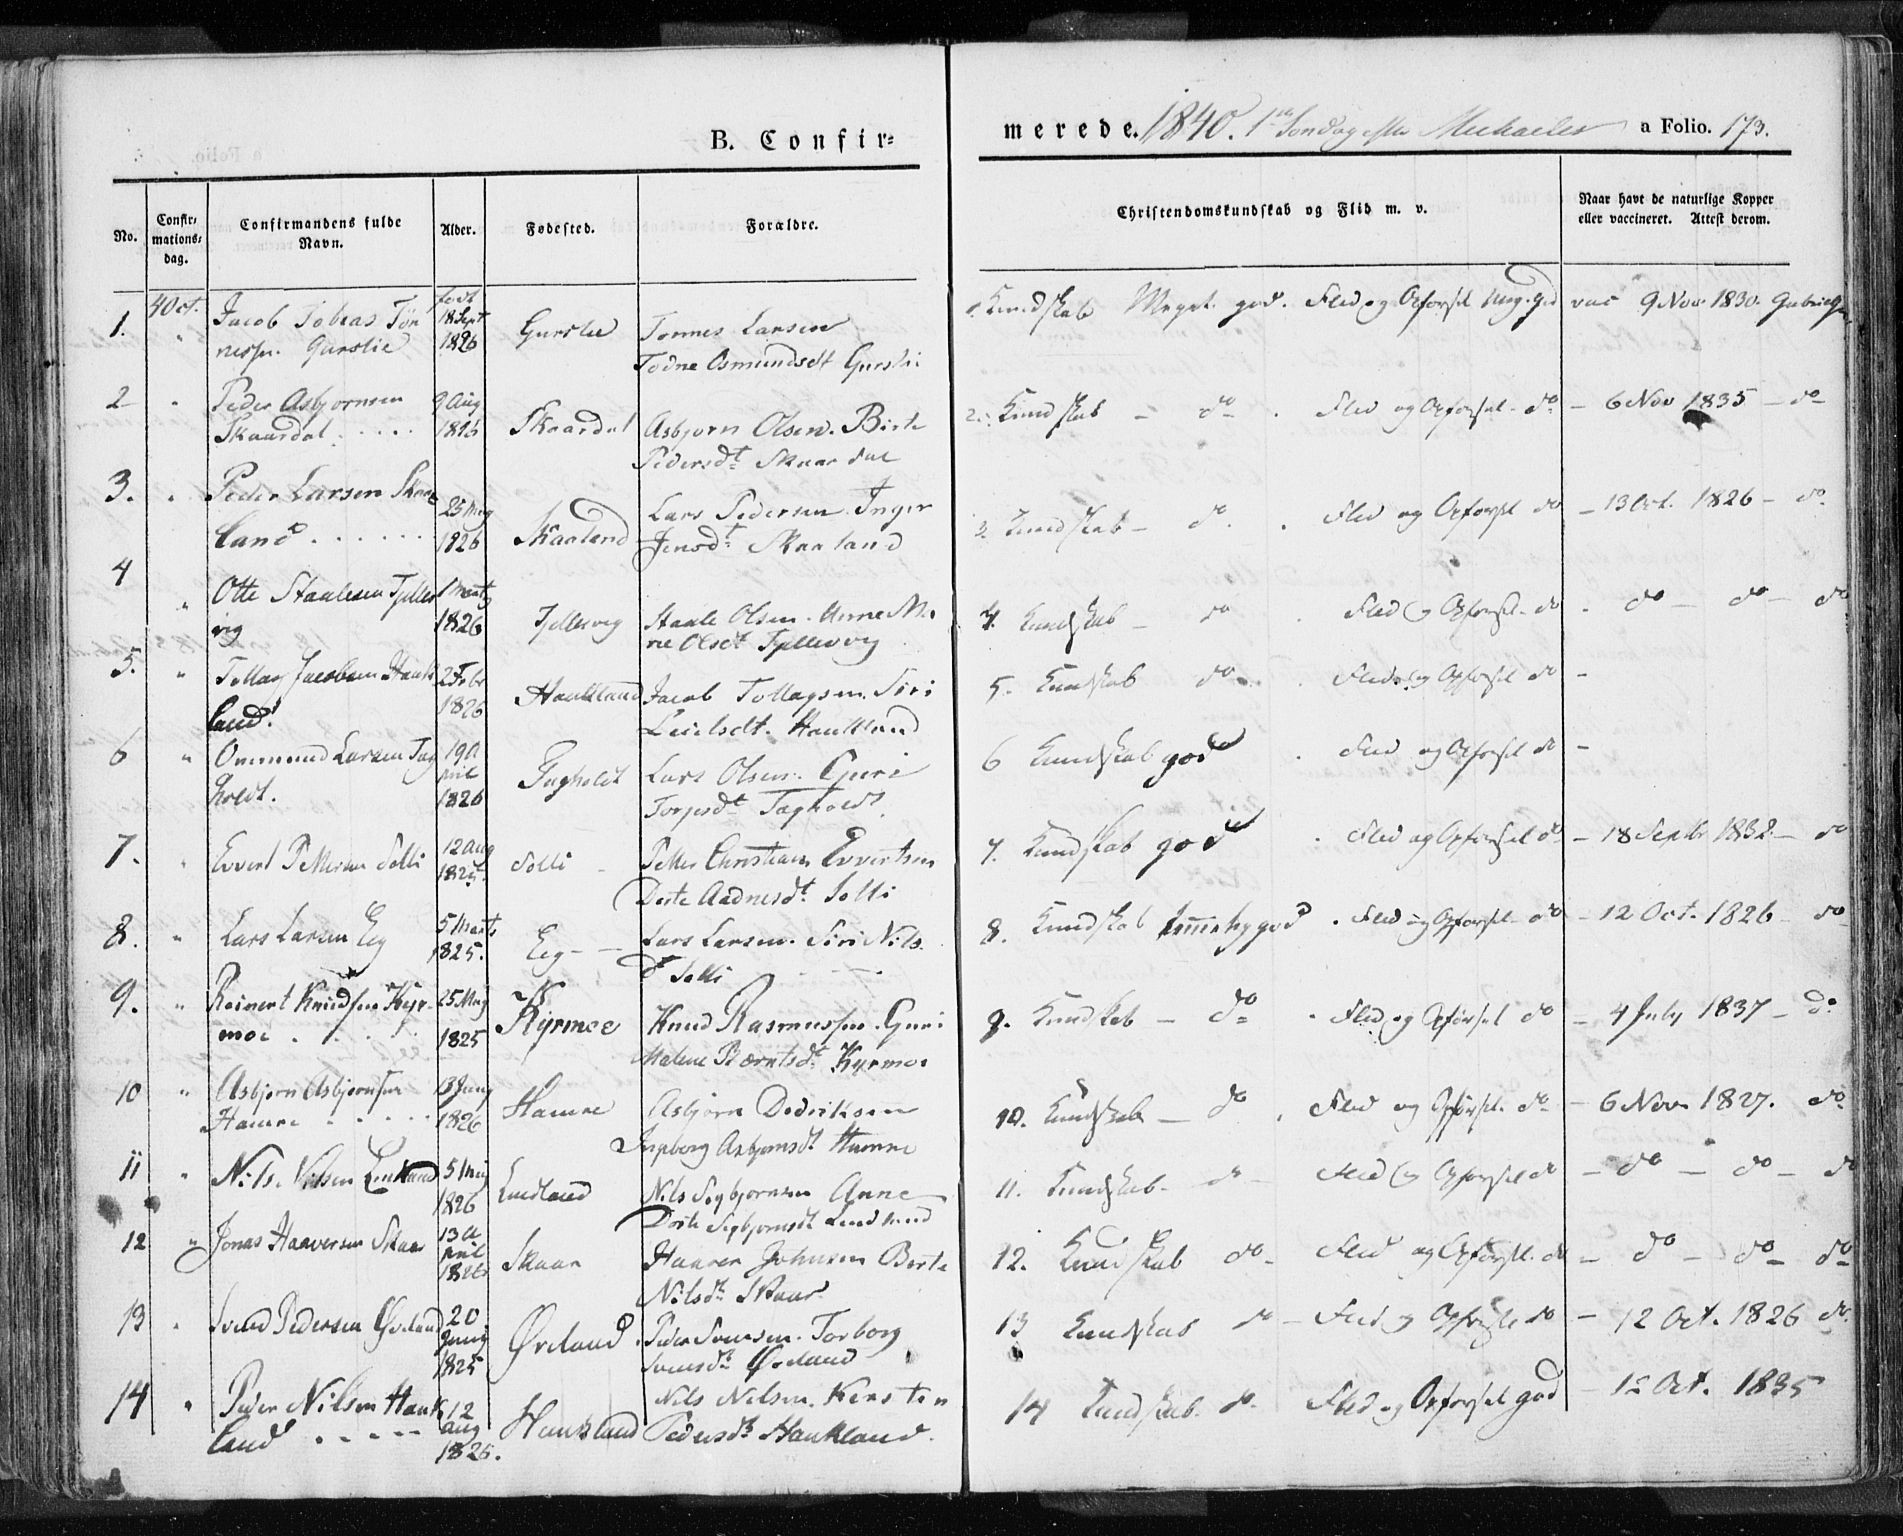 B. Confir=
merede. 1840. 1ste Søndag efter Michaelis a Folio. 173.
No. Confir=mations=dag. Confirmandens fulde Navn. Alder. Fødested. Forældre. Christendomskundskab og Flid m. v. Naar havt de naturlige Kopper eller vaccineret. Attest derom.
1. 4 Oct. Jacob Tobias Tøn født 18 Sept Gurslie Tønnes Larsen 1. Kundskab Meget god. Flid og Opførsel Meg. god vac 9 Nov 1830.
" nessn. Gurslie 1826 Todne Osmundsdt Gursli
2 " Peder Asbjørnsen 9 Aug Skaardal Asbjørn Olsen. Birte 2. Kundskab - do . Flid og Opførsel - do - 6 Nov 1835 - do
Skaardal . . . . 1826 Pedersdt Skaardal
3. " Peder Larsen Skaa 25 May Skaaland Lars Pedersen. Inger 3. Kundskab - do . Flid og Opførsel do - 13 Oct. 1826 - do
land . . . . . . 1826 Jensdt Skaaland
4 " Otte Staalesen Tjelles 1 Marts Tjellesvig Staale Olsen. Anne Ma 4. Kundskab - do Flid og Opførsel - do - do - do - do
vig 1826 rie Olsdt Tjellesvig
5. " Tollag Jacobsen Hauk 2 Febr Haukland Jacob Tollagsen. Siri 5. Kundskab do . Flid og Opførsel do -
land. 1826 Haukland
6 " Ommund Larsen Tag 19 A Tagholdt Lars Olsen. Guri 6 Kundskab god . Flid og Opførsel do -
holdt. pril 1826 Torjesdt Tagholdt
7. " Evert Pettersen Solli 12 Aug 1825. Solli Petter Christian Evertsen 7. Kundskab god . Flid og Opførsel do - 18 Septbr 1832 - do
Dorte Aadnesdt. Solli
8. " Lars Larsen Eeg 5 Marts 1825. Eeg - Lars Larsen. Siri Nils 8. Kundskab temmelig god . Flid og Opførsel - do - 12 Oct. 1826 - do
dt Solli
9. " Reinert Knudsen Kyr- 25 May Kyrmoe Knud Rasmussen. Guri 9. Kundskab - do . Flid og Opførsel do - 4 July 1837 - do
moe . . . . 1825 Malene Berntsdt Kyrmoe
10 " Asbjørn Asbjørnsen 3 Juny Hamre Asbjørn Dedriksen 10. Kundskab - do . Flid og Opførsel. do - 6 Nov 1827. do
Hamre . . . . 1826 Ingborg Asbjørnsdt Hamre
11 " Nils Nilsen Lindland 5 Mai Lindland Nils Sigbjørnsen Anne 11. Kundskab - do - Flid og Opførsel do - do - do - do
1826 Dorte Sigbjørnsdt Lindland
12 " Jonas Haaversen Skaar 13 A Skaar Haaver Johnsen Berte 12. Kundskab do - Flid og Opførsel. do - do - do - do
pril 1826 Nilsdt Skaar
13 " Svend Pedersen Øveland 20 Øveland Peder Svensen. Torborg 13 Kundskab do - Flid og Opførsel do - 12 Oct. 1826 do
Juny 1825 Svensdt Øveland
14 " Peder Nilsen Hauk 12 Haukland Nils Nilsen. Kirsten 14 Kundskab. do. Flid og Opførsel god - 12 Oct. 1835
land . . . . Aug 1826. Pedersdt Haukland.